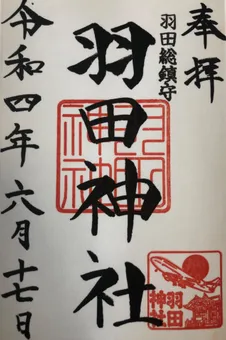 奉拝
羽田総鎮守
羽田神社
令和四年六月十七日
羽田神社
羽田
神社